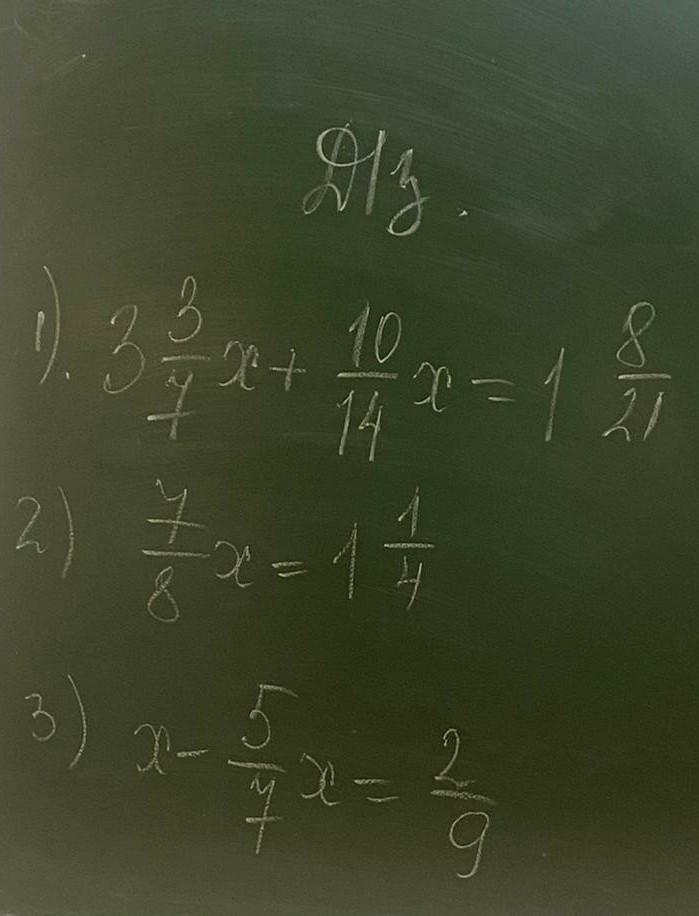 Д/з.
1). 3 3/7 x + 10/14 x = 1 8/21
2) 7/8 x = 1 1/4
3) x - 5/7 x = 2/9